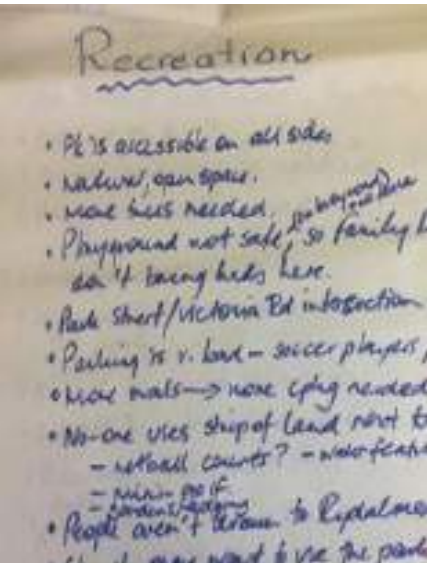 Recreation
• Pk is accessible on all sides
• Natural, open space.
• More trees needed.
• Playground not safe, so family
don't bring kids here.
• Park Street/Victoria Rd intersection
• Parking is v. bad - soccer players,
• More → more needed
• No-one uses strip of land next to
- netball courts? - water
- mini golf
- gardens
• People aren't drawn to Rydalmere
want to use the park